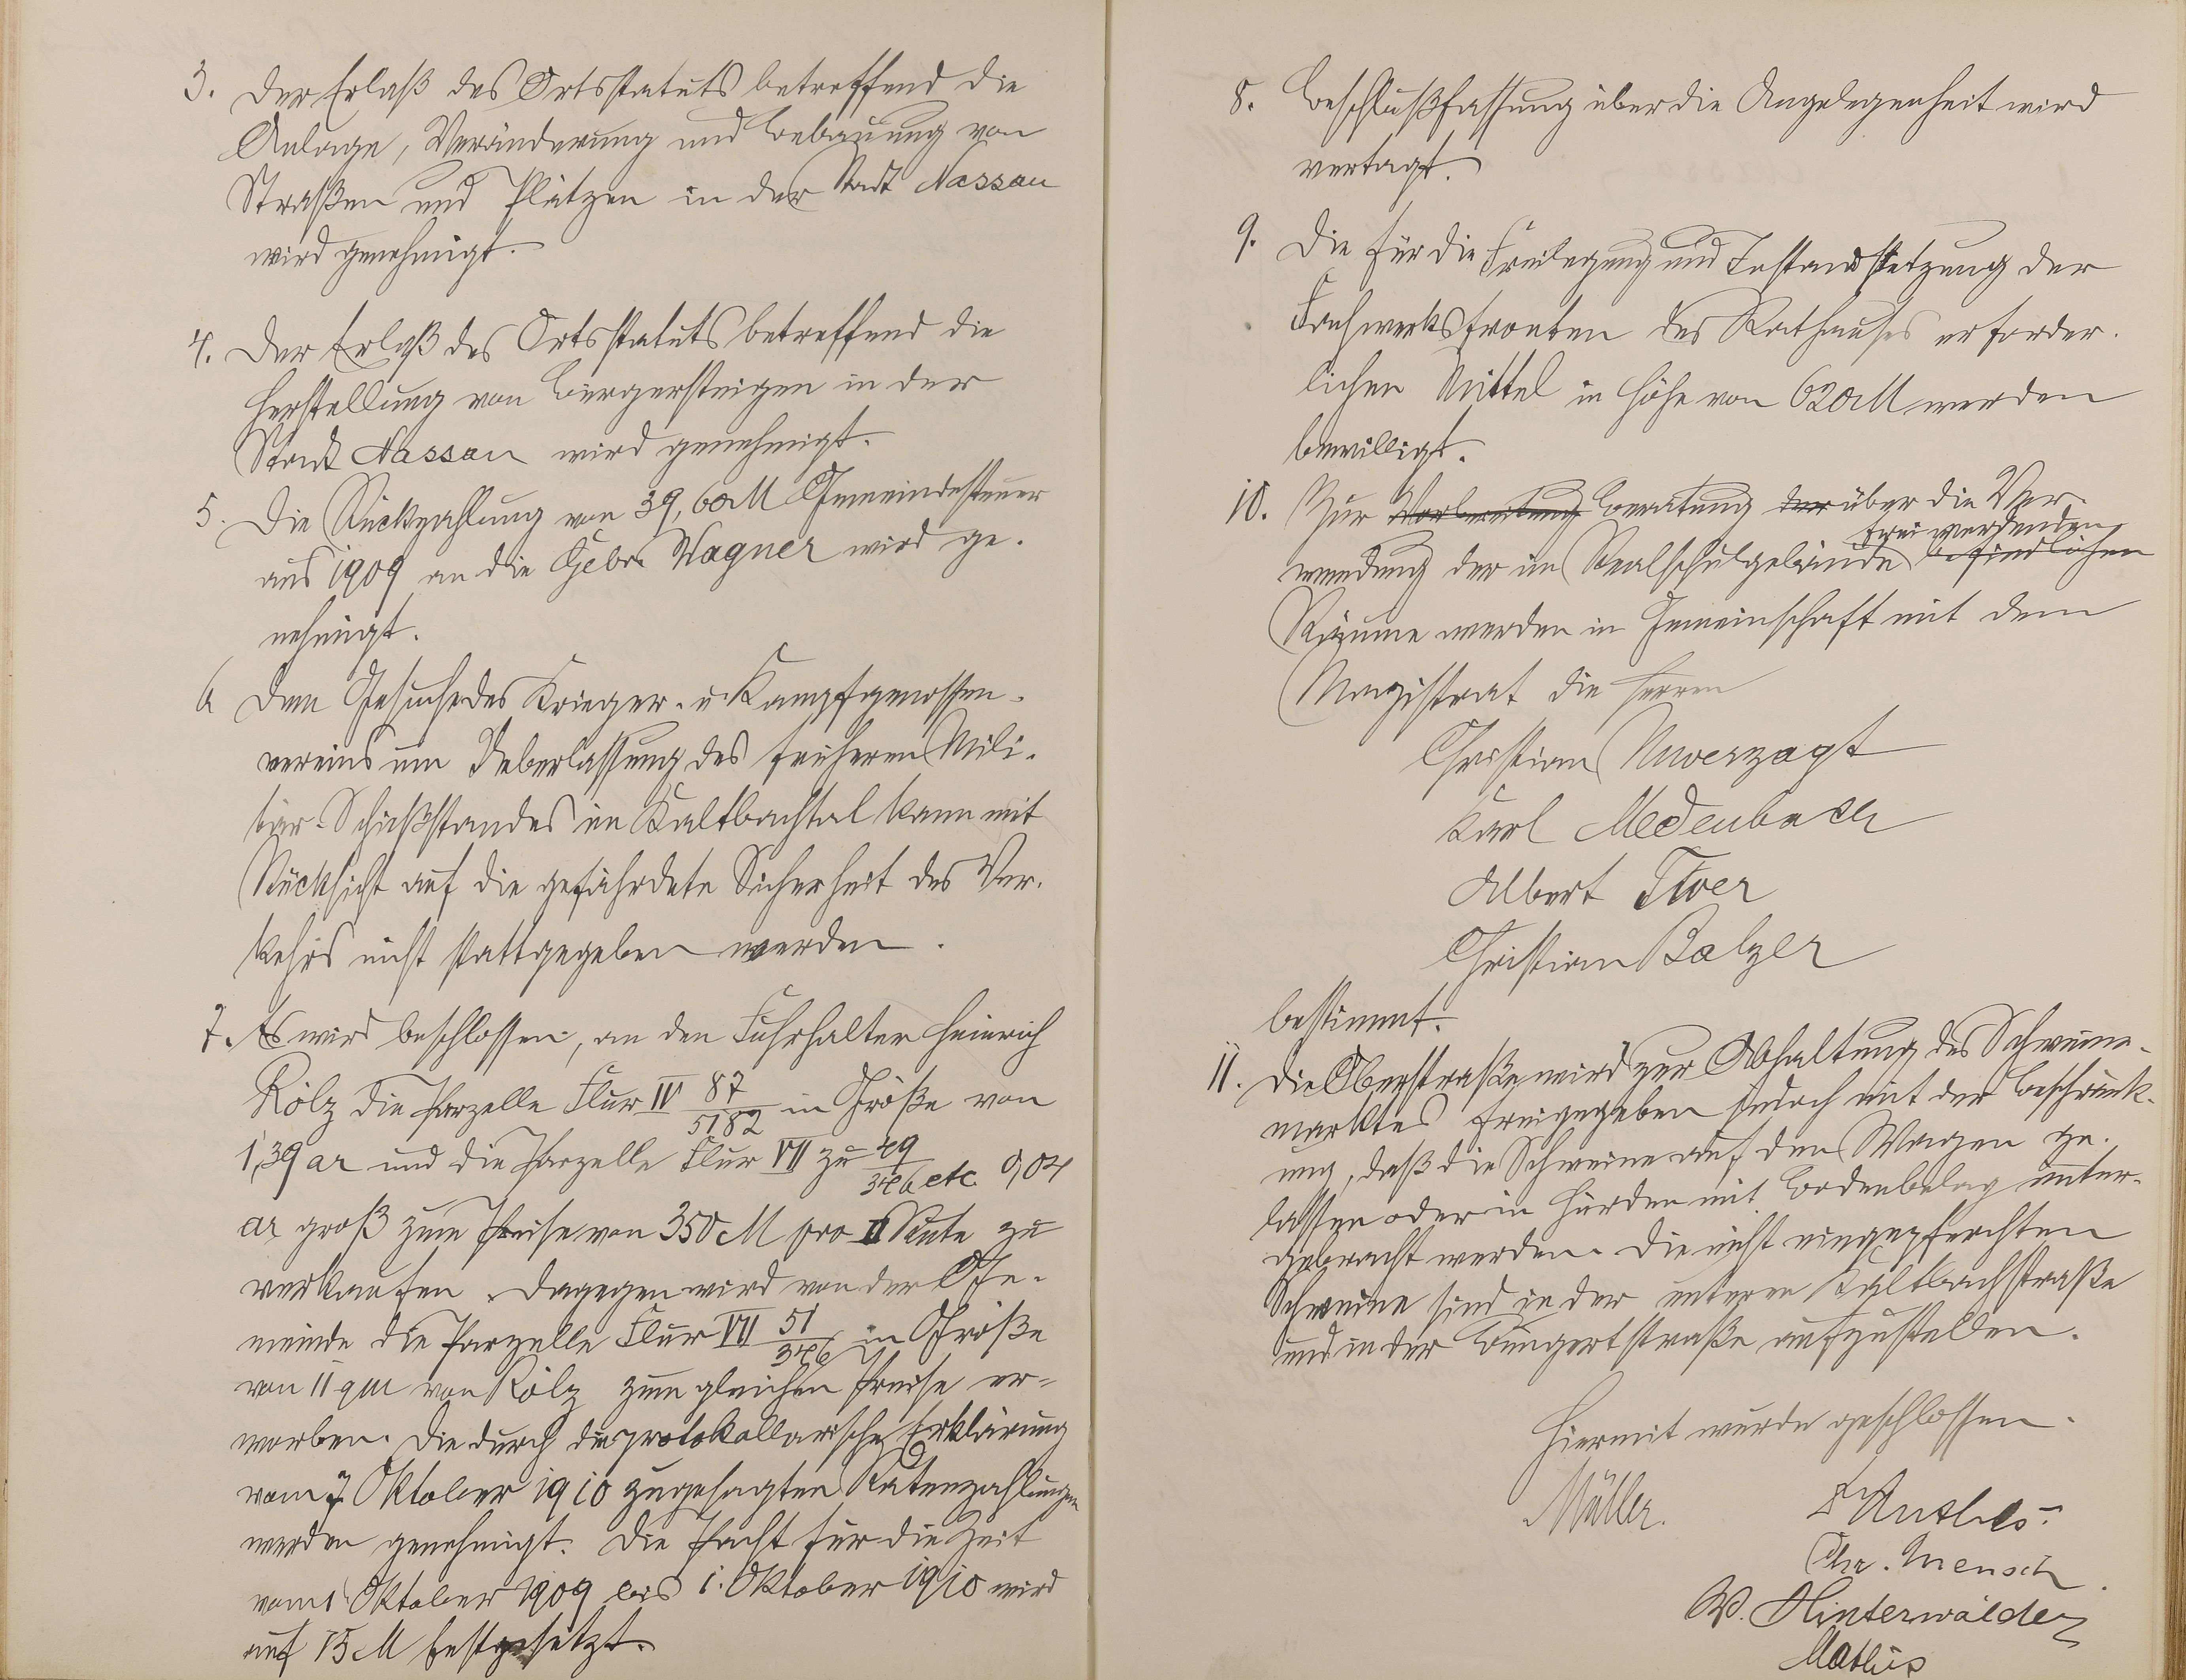 3. Der Erlaß des Ortsstatuts betreffend die
Anlage, Veränderung und Bebauung von
Straßen und Plätzen in der Stadt Nassau
wird genehmigt.
4. Der Erlaß des Ortsstatuts betreffend die
Herstellung von Bürgersteigen in der
Stadt Nassau wird genehmigt.
5. Die Rückzahlung von 39,60 M Gemeindesteuer
aus 1909 an die Gebr. Wagner wird ge-
nehmigt.
6 Dem Gesuche des Krieger- u Kampfgenossen-
vereins um Ueberlassung des früheren Mili-
tär-Schießstandes im Kaltbachtal kann mit
Rücksicht auf die gefährdete Sicherheit des Ver-
kehrs nicht stattgegeben werden.
7. Es wird beschlossen, an den Fuhrhalter Heinrich
Kölz die Parzelle Flur IV 87/5182 in Größe von
1,39 ar und die Parzelle Flur VII zu 49/346 etc 0,04
ar groß zum Preise von 350 M pro □ Rute zu
verkaufen. Dagegen wird von der Ge-
meinde die Parzelle Flur VII 51/346 in Größe
von 11 qm von Kölz zum gleichen Preise er-
worben. Die durch die protokollarische Erklärung
vom 7. Oktober 1910 zugesagten Ratenzahlungen
werden genehmigt. Die Pacht für die Zeit
vom 1 Oktober 1909 bis 1. Oktober 1910 wird
auf 15 M festgesetzt.
8. Beschlußfassung über die Angelegenheit wird
vertagt.
9. Die für die Freilegung und Instandsetzung der
Fachwerksfronten des Rathauses erforder-
lichen Mittel in Höhe von 620 M werden
bewilligt.
10. Zur Vorbereitung Beratung der über die Ver-
freiwerdenden
wendung der im Realschulgebäude befindlichen
Räume werden in Gemeinschaft mit dem
Magistrat die Herren
Christian Unverzagt
Karl Medenbach
Albert
Christian Balzer
bestimmt.
11. Die Oberstraße wird zur Abhaltung des Schweine-
marktes freigegeben jedoch mit der Beschränk-
ung, daß die Schweine auf den Wagen ge-
lassen oder in Hürden mit Bodenbelag unter-
gebracht werden. Die nicht eingepferchten
Schweine sind in der unteren Kaltbachstraße
und in der Bungertstraße aufzustellen.
Hiermit wurde geschlossen.
Müller.
Anthes
Chr. Mensch.
W. Hinterwälder
Mathis